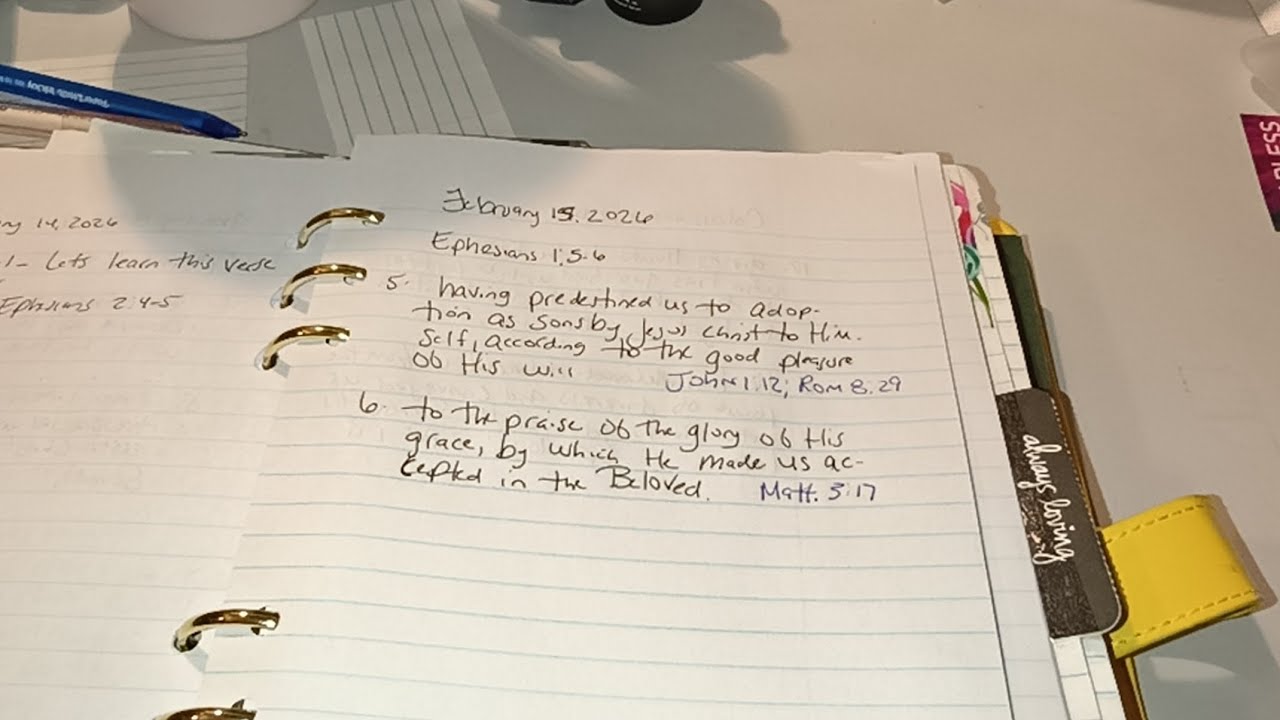 PaperMate InkJoy
BLESS
ry 14, 2026
1- Lets learn this verse
Ephesians 2:4-5
February 15, 2026
Ephesians 1:5-6
5. having predestined us to adop-
tion as sons by Jesus Christ to Him-
self, according to the good pleasure
of His will John 1:12; Rom 8:29
6. to the praise of the glory of His
grace, by which He made us ac-
cepted in the Beloved. Matt. 3:17
always loving